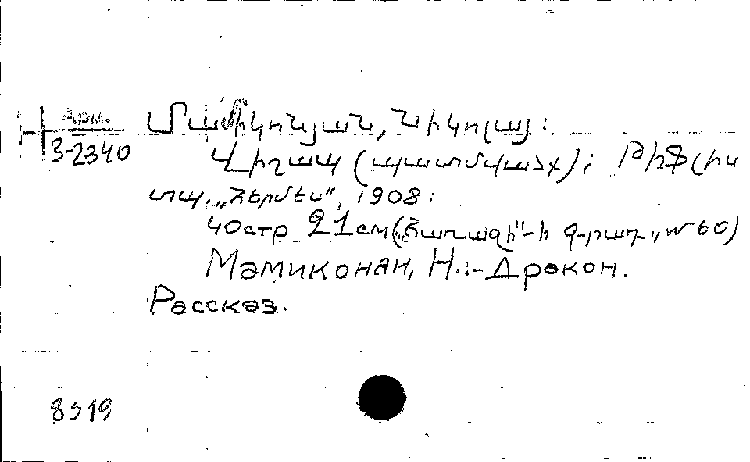 Арм.
3-2340
Մամիկոնյան, Նիկոլայ:
Վիշապ (պատմվածք): Թիֆլիս
տպ. „Հերմես", 1908:
40стр 21см („Ճառագի"-ի գրադ., №60)
Мамиконян, Н.:- Дракон.
Рассказ.
8919